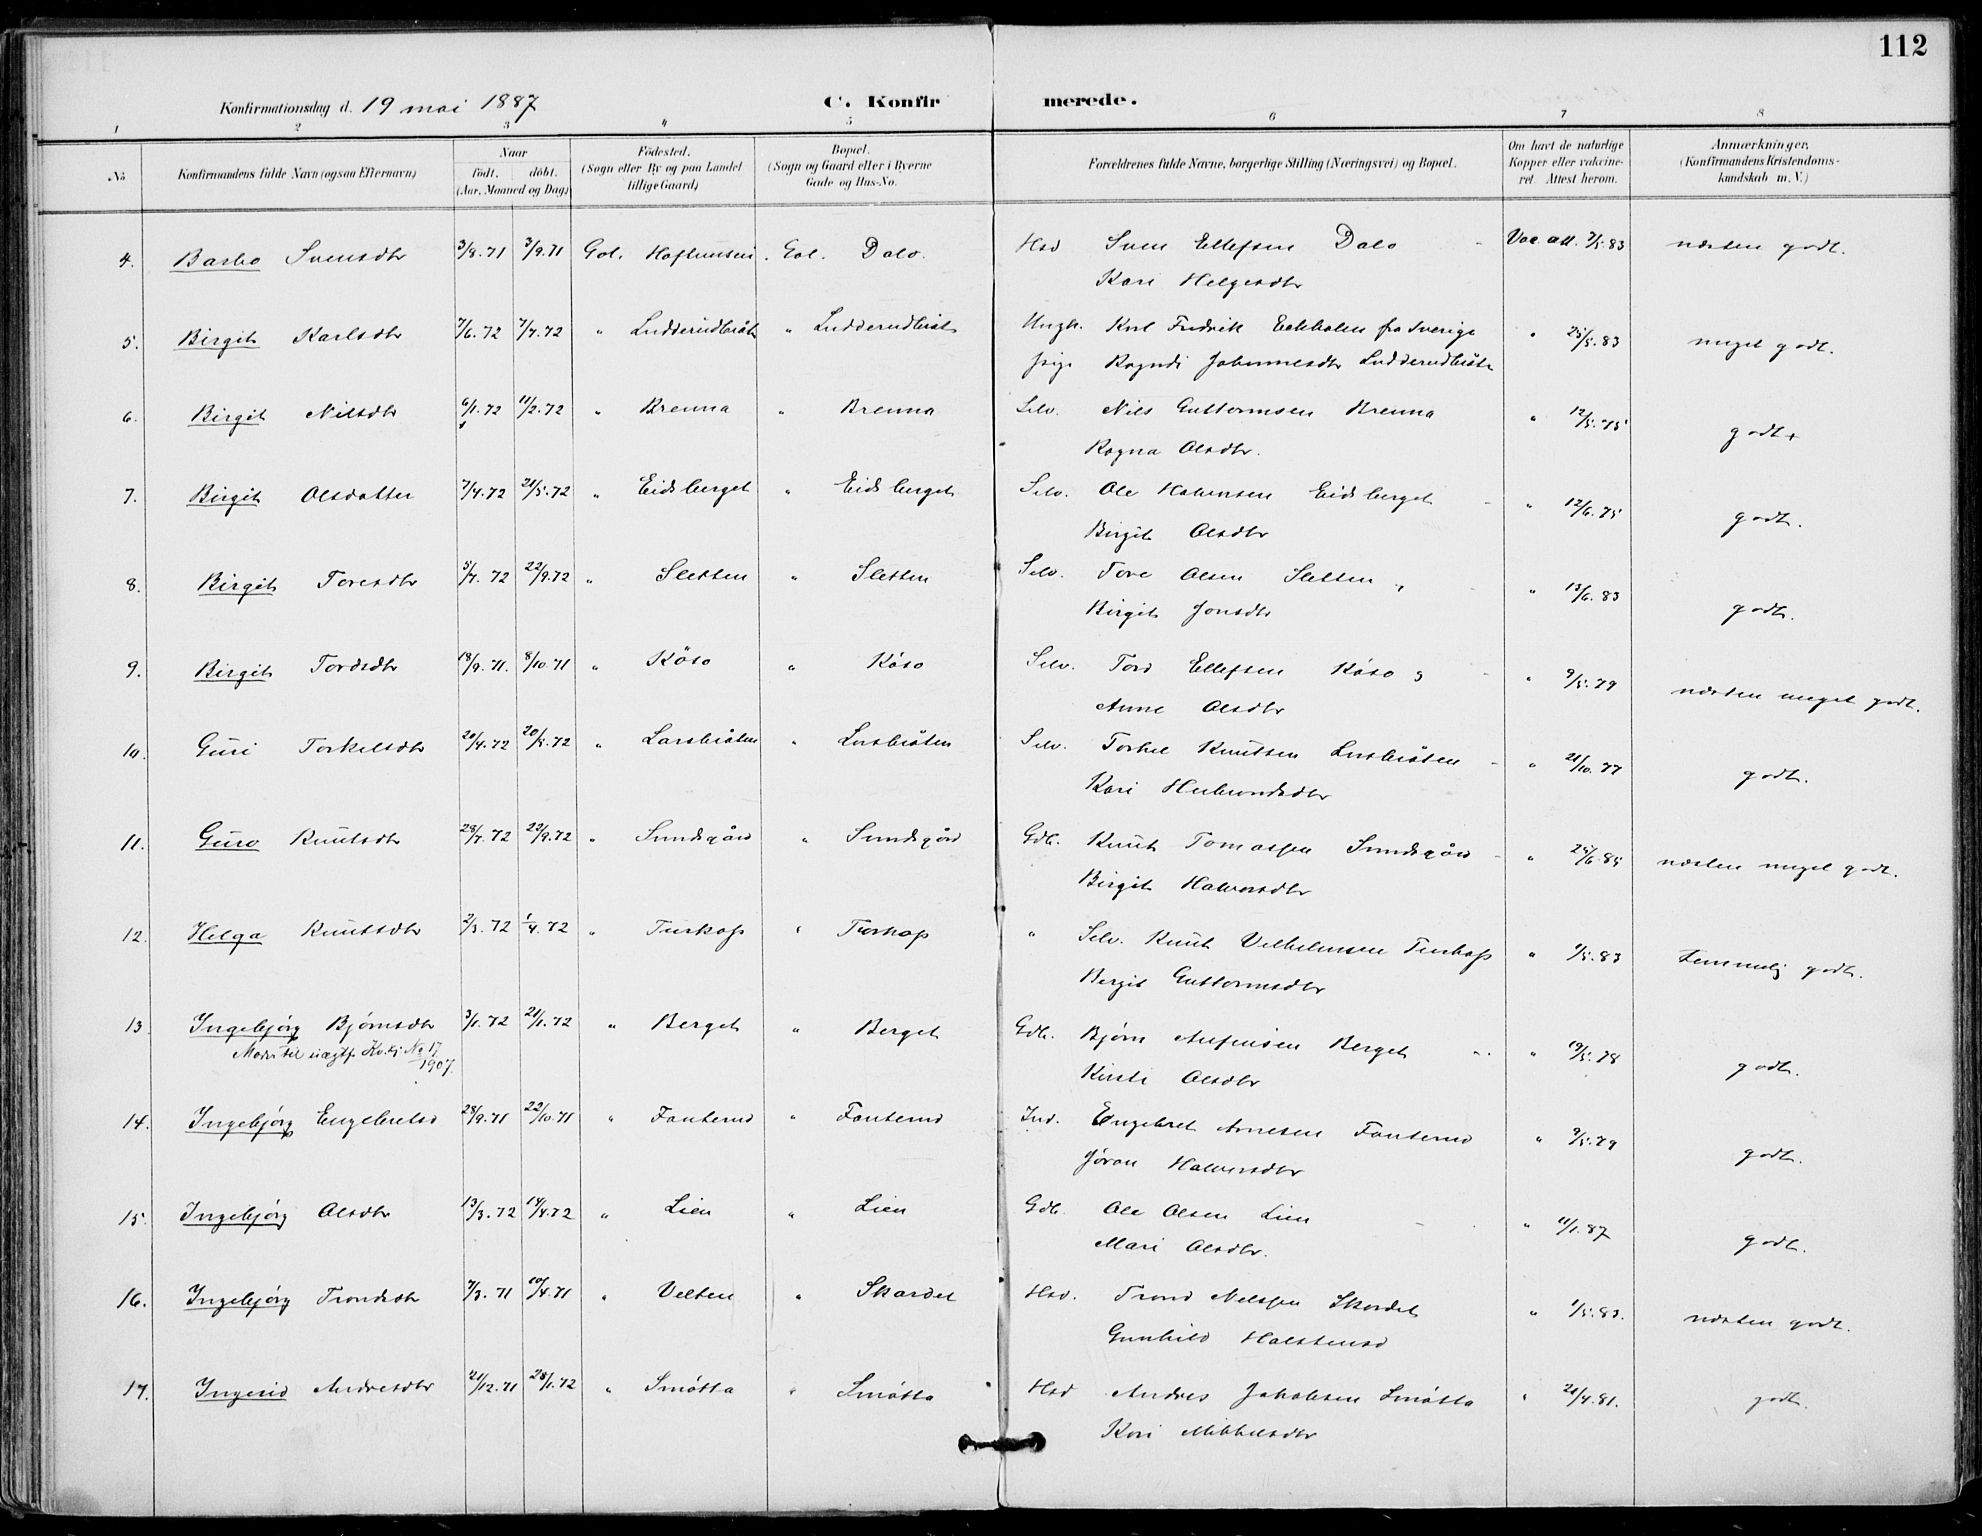 112
Konfirmationsdag d. 19 mai 1887 C. Konfirmerede.
1 2 3 4 5 6 7 8
No. Konfirmandens fulde Navn (ogsaa Efternavn) Naar født. døbt. (Aar, Maaned og Dag) Fødested. (Sogn eller By og paa Landet tillige Gaard) Bopæl. (Sogn og Gaard eller i Byerne Gade og Hus-No. Forældrenes fulde Navne, borgerlige Stilling (Næringsvei) og Bopæl. Om havt de naturlige Kopper eller vakcineret. Attest herom. Anmærkninger, (Konfirmandens Kristendomskundskab m. V.)
4. Barbo Svensdtr 3/8.71 3/9.71 Gol. Gol. Dalo. Hsd Sven Ellefsen Dalo Vac. att. 7/5.83 næsten godt.
Kari Helgesdtr
5. Birgit Karlsdtr 7/6.72 7/7.72 " Ludderudbråt " Ludderudbråt Ungk. Karl Fredrik fra Sverige " 25/5.83 meget godt.
Pige Ragndi Johannesdtr Ludderudbråt
6. Birgit Nilsdtr 6/1.72 11/2.72 " Brenna " Brenna Selv. Nils Guttormsen Brenna " 12/5.75 godt
Ragna Olsdtr.
7. Birgit Olsdatter 7/4.72 21/5.72 " Eidsberget " Eidsberget Selv. Ole Halvorsen Eidsberget " 12/6.75 godt.
Birgit Olsdtr
8. Birgit Toresdtr 5/7.72 22/9.72 " Sletten " Sletten Selv. Tore Olsen Sletten " 13/6.83 godt.
Birgit Jonsdtr
9. Birgit Tordsdtr 18/9.71. 8/10.71 " Kóso " Kóso Selv. Tord Ellefsen Kóso " 9/5.79 næsten meget godt.
Anne Olsdtr
10. Guri Torkelsdtr 20/4.72 20/5.72 " Larsbråten " Larsbråten Selv. Torkel Knutsen Larsbråten " 21/10.77 godt.
Kari Herbrandsdtr
11. Guro Knutsdtr 28/7.72 22/9.72 " Sundsgård " Sundsgård Gdb. Knut Tomassen Sundsgård " 25/6.85 næsten meget godt.
Birgit Halvorsdtr
12. Helga Knutsdtr 2/3.72 1/4.72 " Turkop " Torkop " Selv. Knut Vilhelmsen " 1/5.83 temmelig godt.
Bergit Guttormsdtr
13 Ingebjørg Bjørnsdtr 3/1.72 21/1.72 " Berget " Berget Gdb. Bjørn Berget " 19/5.78 godt.
Moder til uægtf. No 17 1907.
Kirsti Olsdtr
14. Ingebjørg Engebretsd 28/9.71 22/10.71 " Fauterud " Fauterud Ind. Engebret Arnesen Fauterud " 9/5.79 godt.
Jóran Halvorsdtr
15. Ingebjørg Olsdtr 13/3.72 14/4.72 " Lien " Lien Gdb. Ole Olsen Lien " 11/1.87 godt.
Mari Olsdtr.
16. Ingebjørg Trondsdtr 7/3.71 10/4.71 " Velten " Skardet Hsd. Trond Nelssen Skardet " 1/5.83. næsten godt.
Gunhild Halstensd
17. Ingerid Andresdtr 21/12.71 28/1.72 " Smótta " Smótta Hsd Andres Jakobsen Smótta " 21/4.81. godt.
Kari Mikkelsdtr